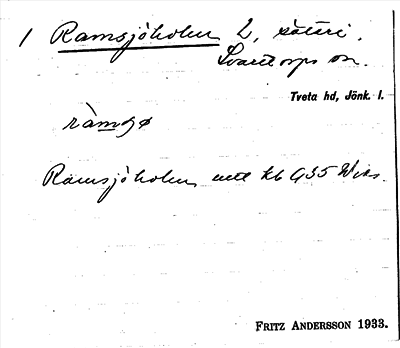 1 Ramsjöholm 2, säteri.
Svarttorps sn.
Tveta hd, Jönk. l.
ràmsø
Ramsjöholm
FRITZ ANDERSSON 1933.